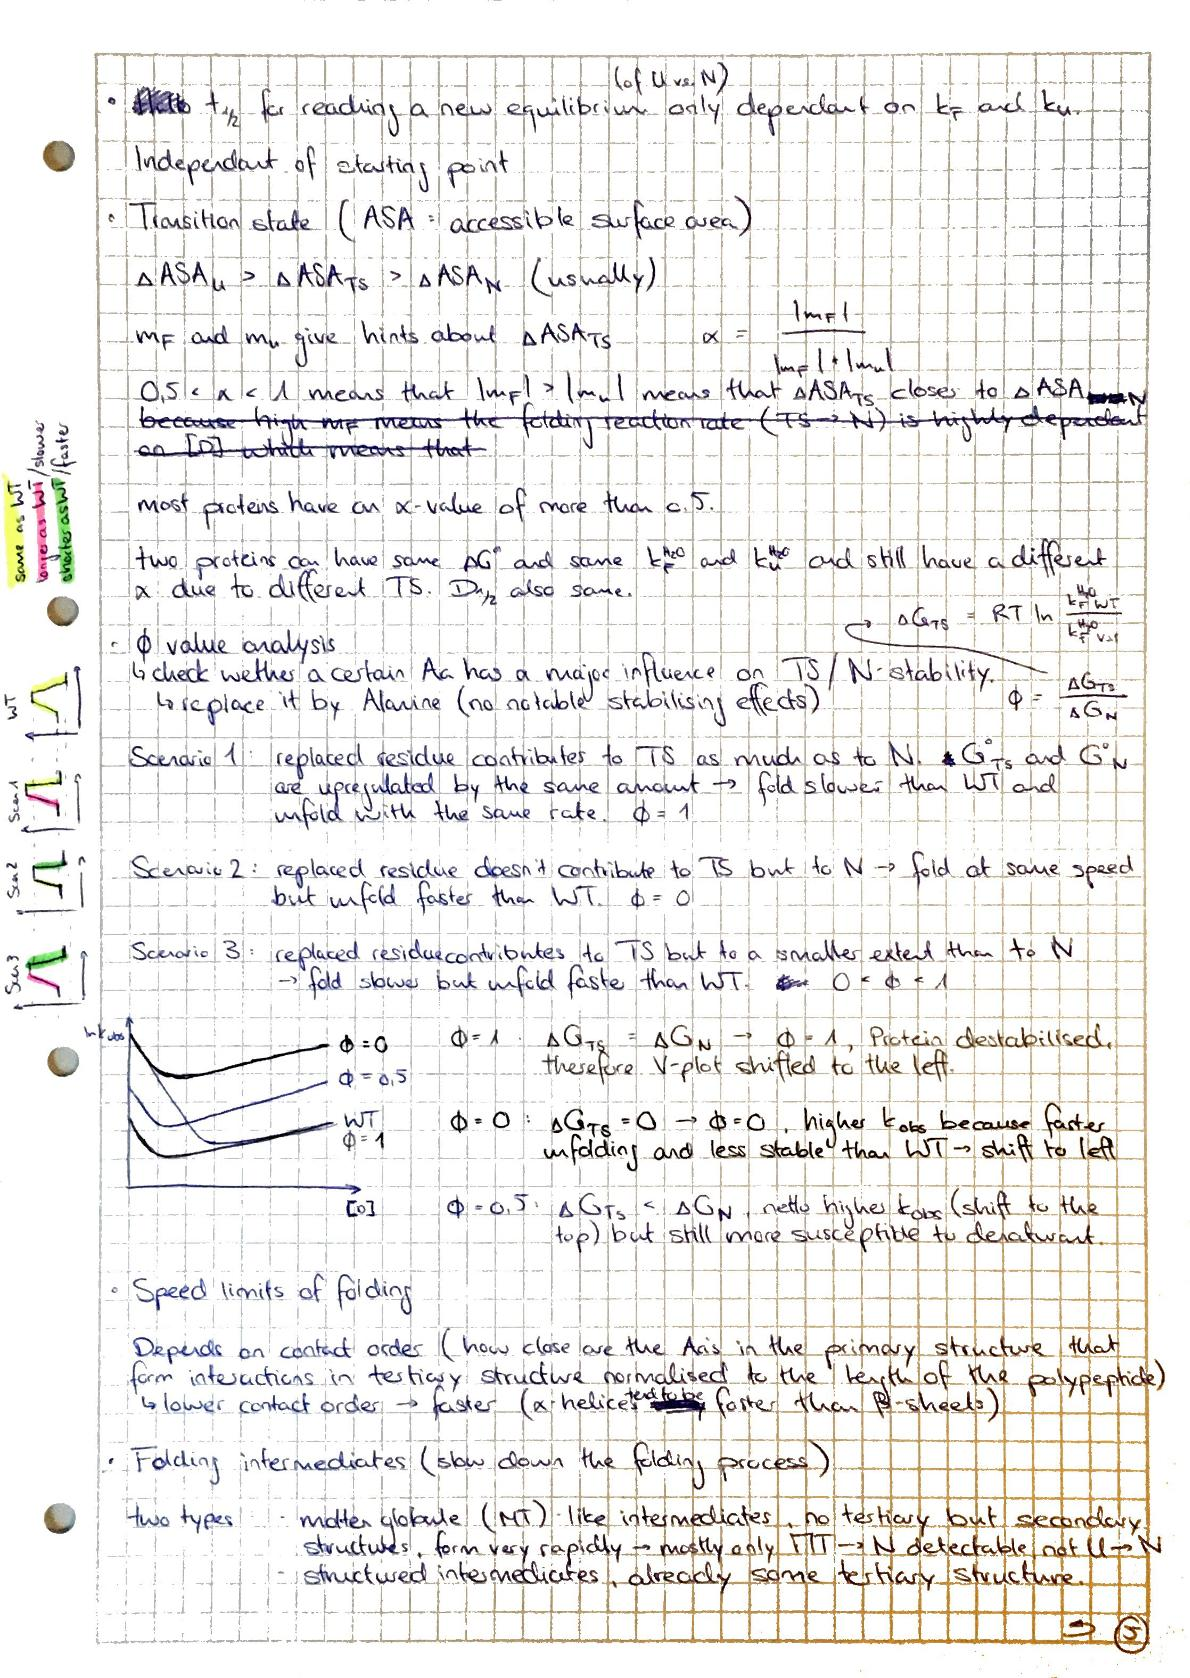 (of U vs. N)
• t½ for reaching a new equilibrium only dependant on kF and kU.
Independant of starting point
• Transition state (ASA = accessible surface area)
ΔASAU > ΔASATS > ΔASAN (usually)
mF and mU give hints about ΔASATS α = |mF| / |mF| + |mU|
0,5 < α < 1 means that |mF| > |mU| means that ΔASATS closes to ΔASAN
because high mF means the folding reaction rate (TS → N) is highly dependent
on [D] which means that
most proteins have an α-value of more than 0.5.
two proteins can have same ΔG° and same kF^H2O and kU^H2O and still have a different
α due to different TS. D1/2 also same.
ΔGTS = RT ln kF^H2O WT / kF^H2O Var
• ϕ value analysis
↳ check wether a certain Aa has a major influence on TS/N-stability.
↳ replace it by Alanine (no notable stabilising effects) ϕ = ΔGTS / ΔGN
Scenario 1: replaced residue contributes to TS as much as to N. G°TS and G°N
are upregulated by the same amount → fold slower than WT and
unfold with the same rate. ϕ = 1
Scenario 2: replaced residue doesn't contribute to TS but to N → fold at same speed
but unfold faster than WT. ϕ = 0
Scenario 3: replaced residue contributes to TS but to a smaller extent than to N
→ fold slower but unfold faster than WT. 0 < ϕ < 1
same as WT
longer as WT/slower
shorter as WT/faster
WT
Scen1
Scen2
Scen3
ln kobs
ϕ = 0
ϕ = 0,5
WT
ϕ = 1
[D]
ϕ = 1 : ΔGTS = ΔGN → ϕ = 1, Protein destabilised,
therefore V-plot shifted to the left.
ϕ = 0 : ΔGTS = 0 → ϕ = 0, higher kobs because faster
unfolding and less stable than WT → shift to left
ϕ = 0,5 : ΔGTS < ΔGN, netto higher kobs (shift to the
top) but still more susceptible to denaturant.
• Speed limits of folding
Depends on contact order (how close are the Aas in the primary structure that
form interactions in tertiary structure normalised to the length of the polypeptide)
↳ lower contact order → faster (α-helices tend to be faster than β-sheets)
• Folding intermediates (slow down the folding process)
two types : - molten globule (MT)-like intermediates, no tertiary but secondary
structures, form very rapidly → mostly only MT → N detectable not U → N
- structured intermediates, already some tertiary structure.
5